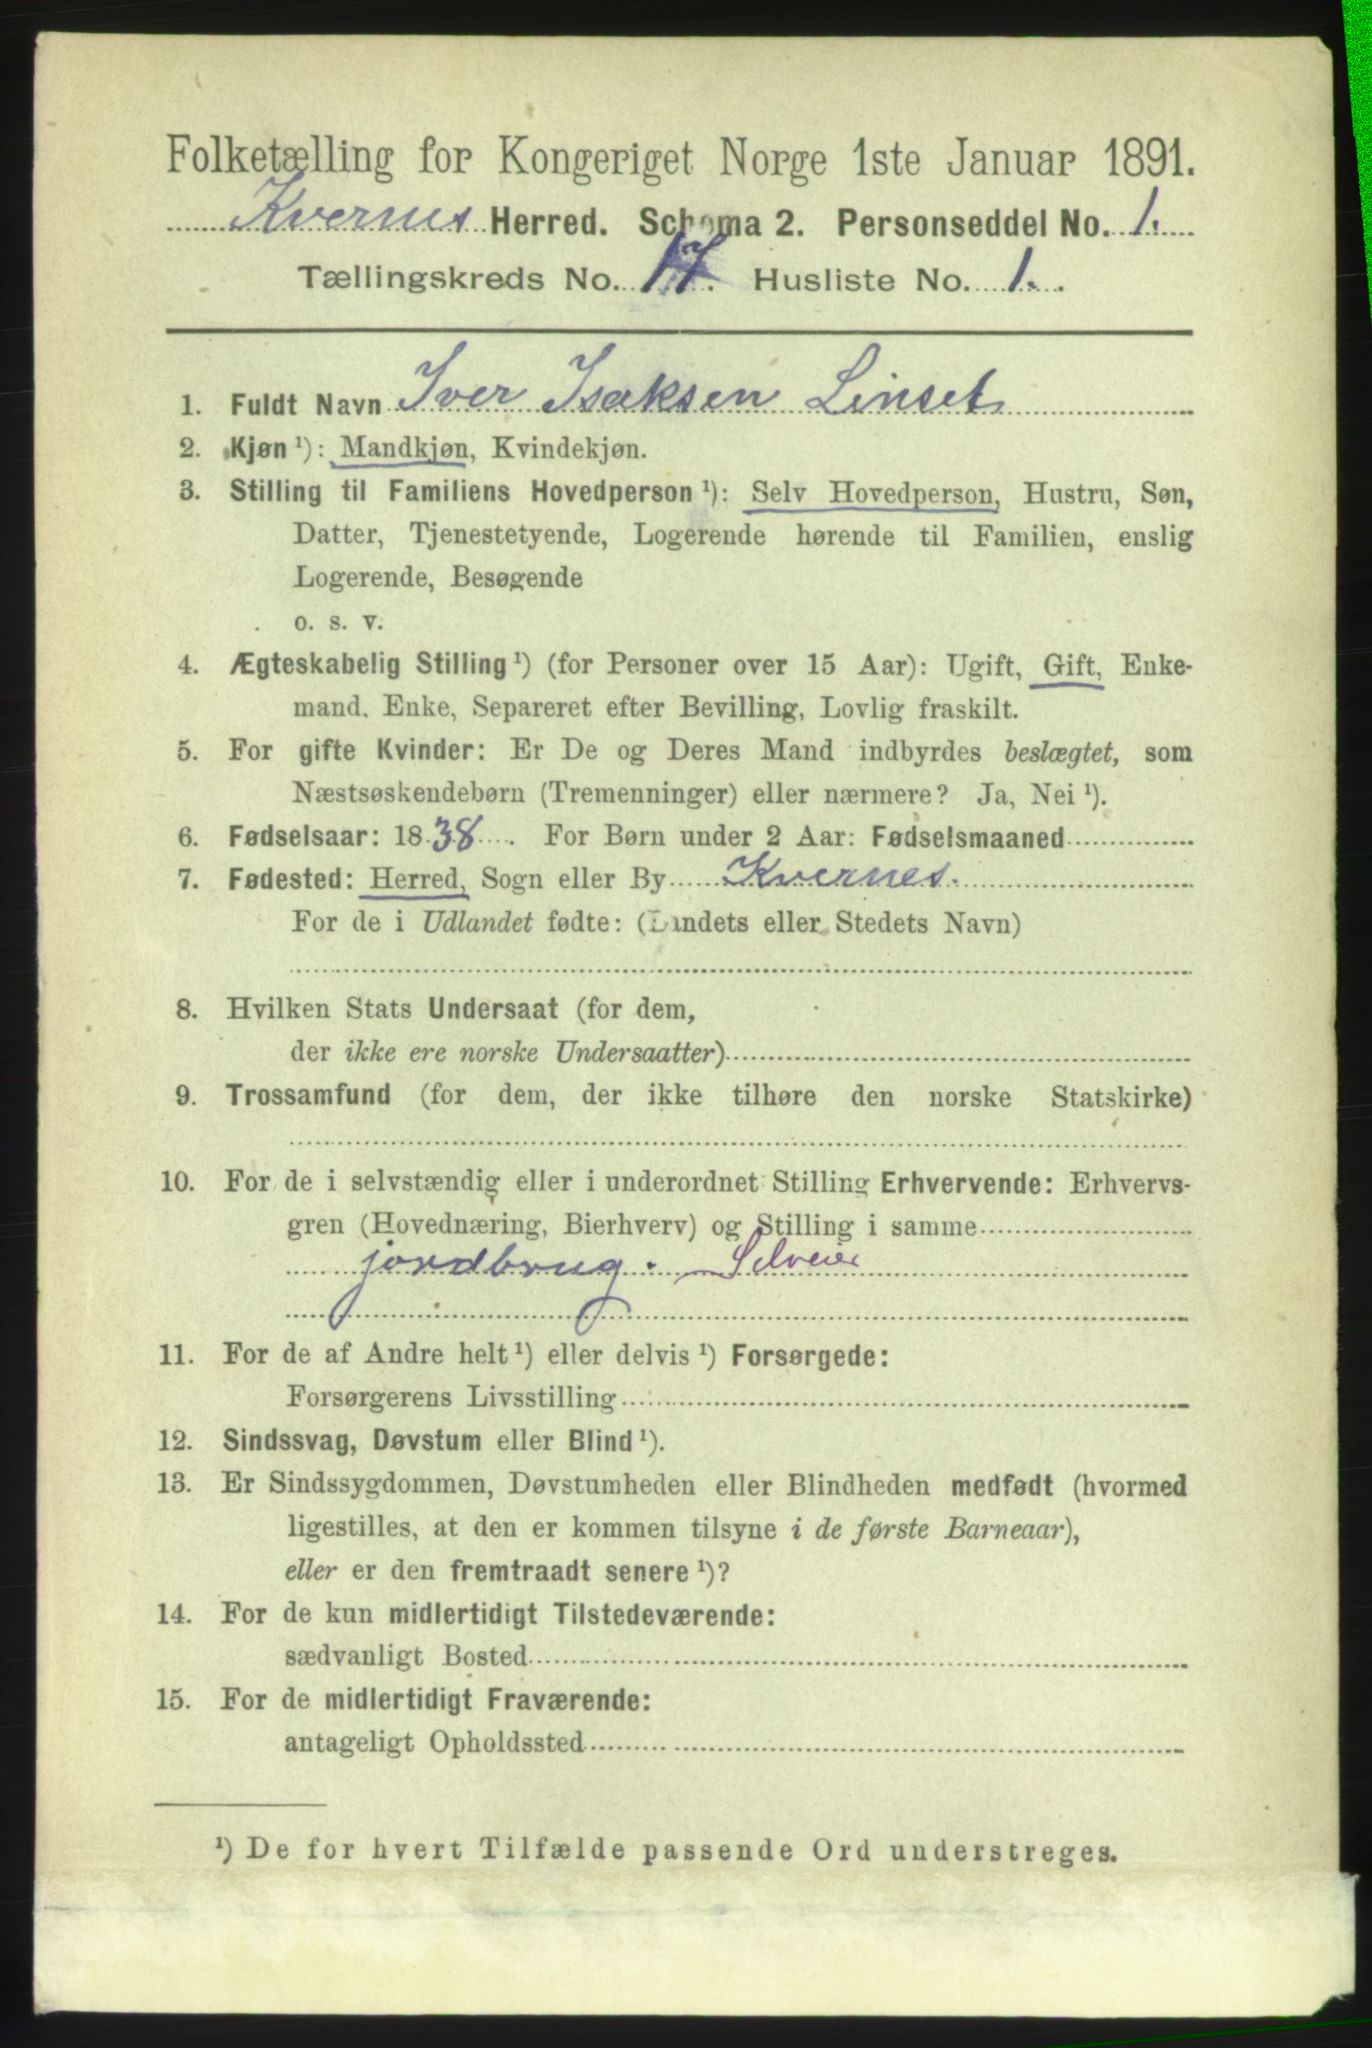 Folketælling for Kongeriget Norge 1ste Januar 1891.
Kvernes Herred. Schema 2. Personseddel No. 1.
Tællingskreds No. 17. Husliste No. 1.
1. Fuldt Navn Iver Isaksen Linset
2. Kjøn ¹): Mandkjøn, Kvindekjøn.
3. Stilling til Familiens Hovedperson ¹): Selv Hovedperson, Hustru, Søn,
Datter, Tjenestetyende, Logerende hørende til Familien, enslig
Logerende, Besøgende
o. s. v.
4. Ægteskabelig Stilling ¹) (for Personer over 15 Aar): Ugift, Gift, Enke-
mand, Enke, Separeret efter Bevilling, Lovlig fraskilt.
5. For gifte Kvinder: Er De og Deres Mand indbyrdes beslægtet, som
Næstsøskendebørn (Tremenninger) eller nærmere? Ja, Nei ¹).
6. Fødselsaar: 1838. For Børn under 2 Aar: Fødselsmaaned
7. Fødested: Herred, Sogn eller By Kvernes.
For de i Udlandet fødte: (Landets eller Stedets Navn)
8. Hvilken Stats Undersaat (for dem,
der ikke ere norske Undersaatter)
9. Trossamfund (for dem, der ikke tilhøre den norske Statskirke)
10. For de i selvstændig eller i underordnet Stilling Erhvervende: Erhvervs-
gren (Hovednæring, Bierhverv) og Stilling i samme
jordbrug. Selveier
11. For de af Andre helt ¹) eller delvis ¹) Forsørgede:
Forsørgerens Livsstilling
12. Sindssvag, Døvstum eller Blind ¹).
13. Er Sindssygdommen, Døvstumheden eller Blindheden medfødt (hvormed
ligestilles, at den er kommen tilsyne i de første Barneaar),
eller er den fremtraadt senere ¹)?
14. For de kun midlertidigt Tilstedeværende:
sædvanligt Bosted
15. For de midlertidigt Fraværende:
antageligt Opholdssted
¹) De for hvert Tilfælde passende Ord understreges.